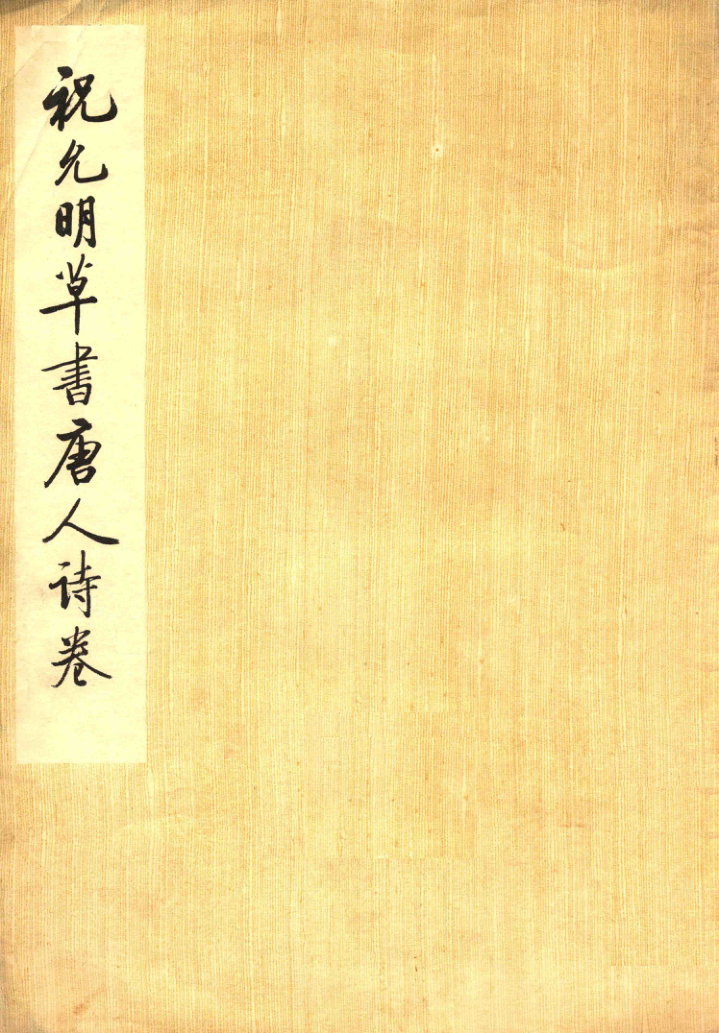 祝允明草书唐人诗卷